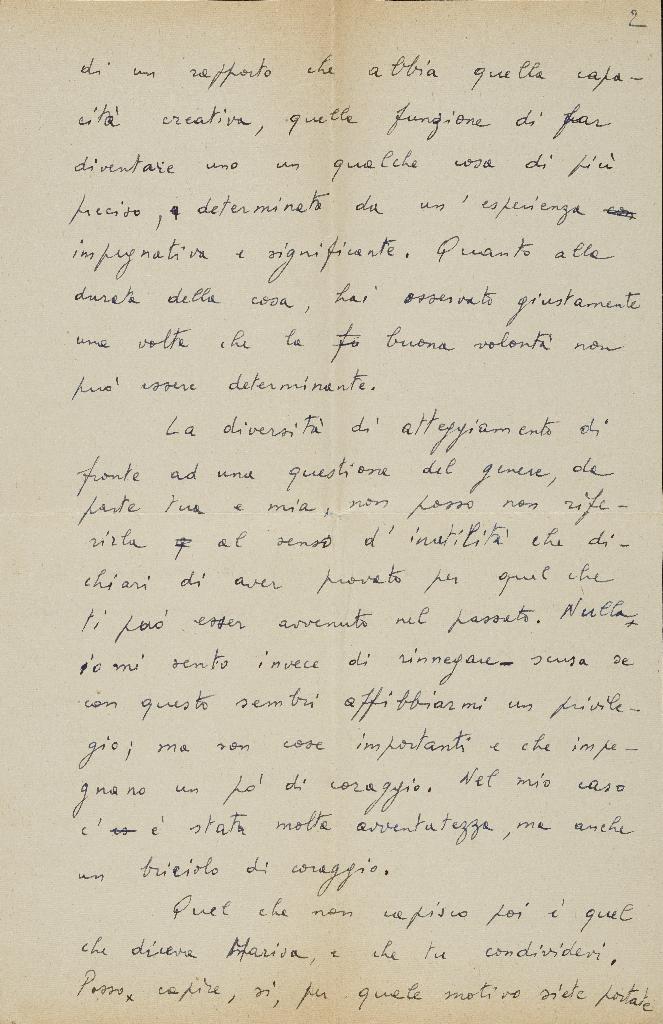 2
di un rapporto che abbia quella capa-
cità creativa, quella funzione di far
diventare uno un qualche cosa di più
preciso, e determinato da un' esperienza con
impegnativa e significante. Quanto alla
durata della cosa, hai osservato giustamente
una volta che la fo buona volontà non
può essere determinante.
La diversità di atteggiamento di
fronte ad una questione del genere, da
parte tua e mia, non posso non rife-
rirla al senso d' inutilità che di-
chiari di aver provato per quel che
ti può esser avvenuto nel passato. Nulla
io mi sento invece di rinnegare - scusa se
con questo sembri affibbiarmi un privile-
gio; ma son cose importanti e che impe-
gnano un pó di coraggio. Nel mio caso
c' è stata molta avventatezza, ma anche
un briciolo di coraggio.
Quel che non capisco poi è quel
che diceva Marisa, e che tu condividevi.
Posso capire, sì, per quale motivo siete portate